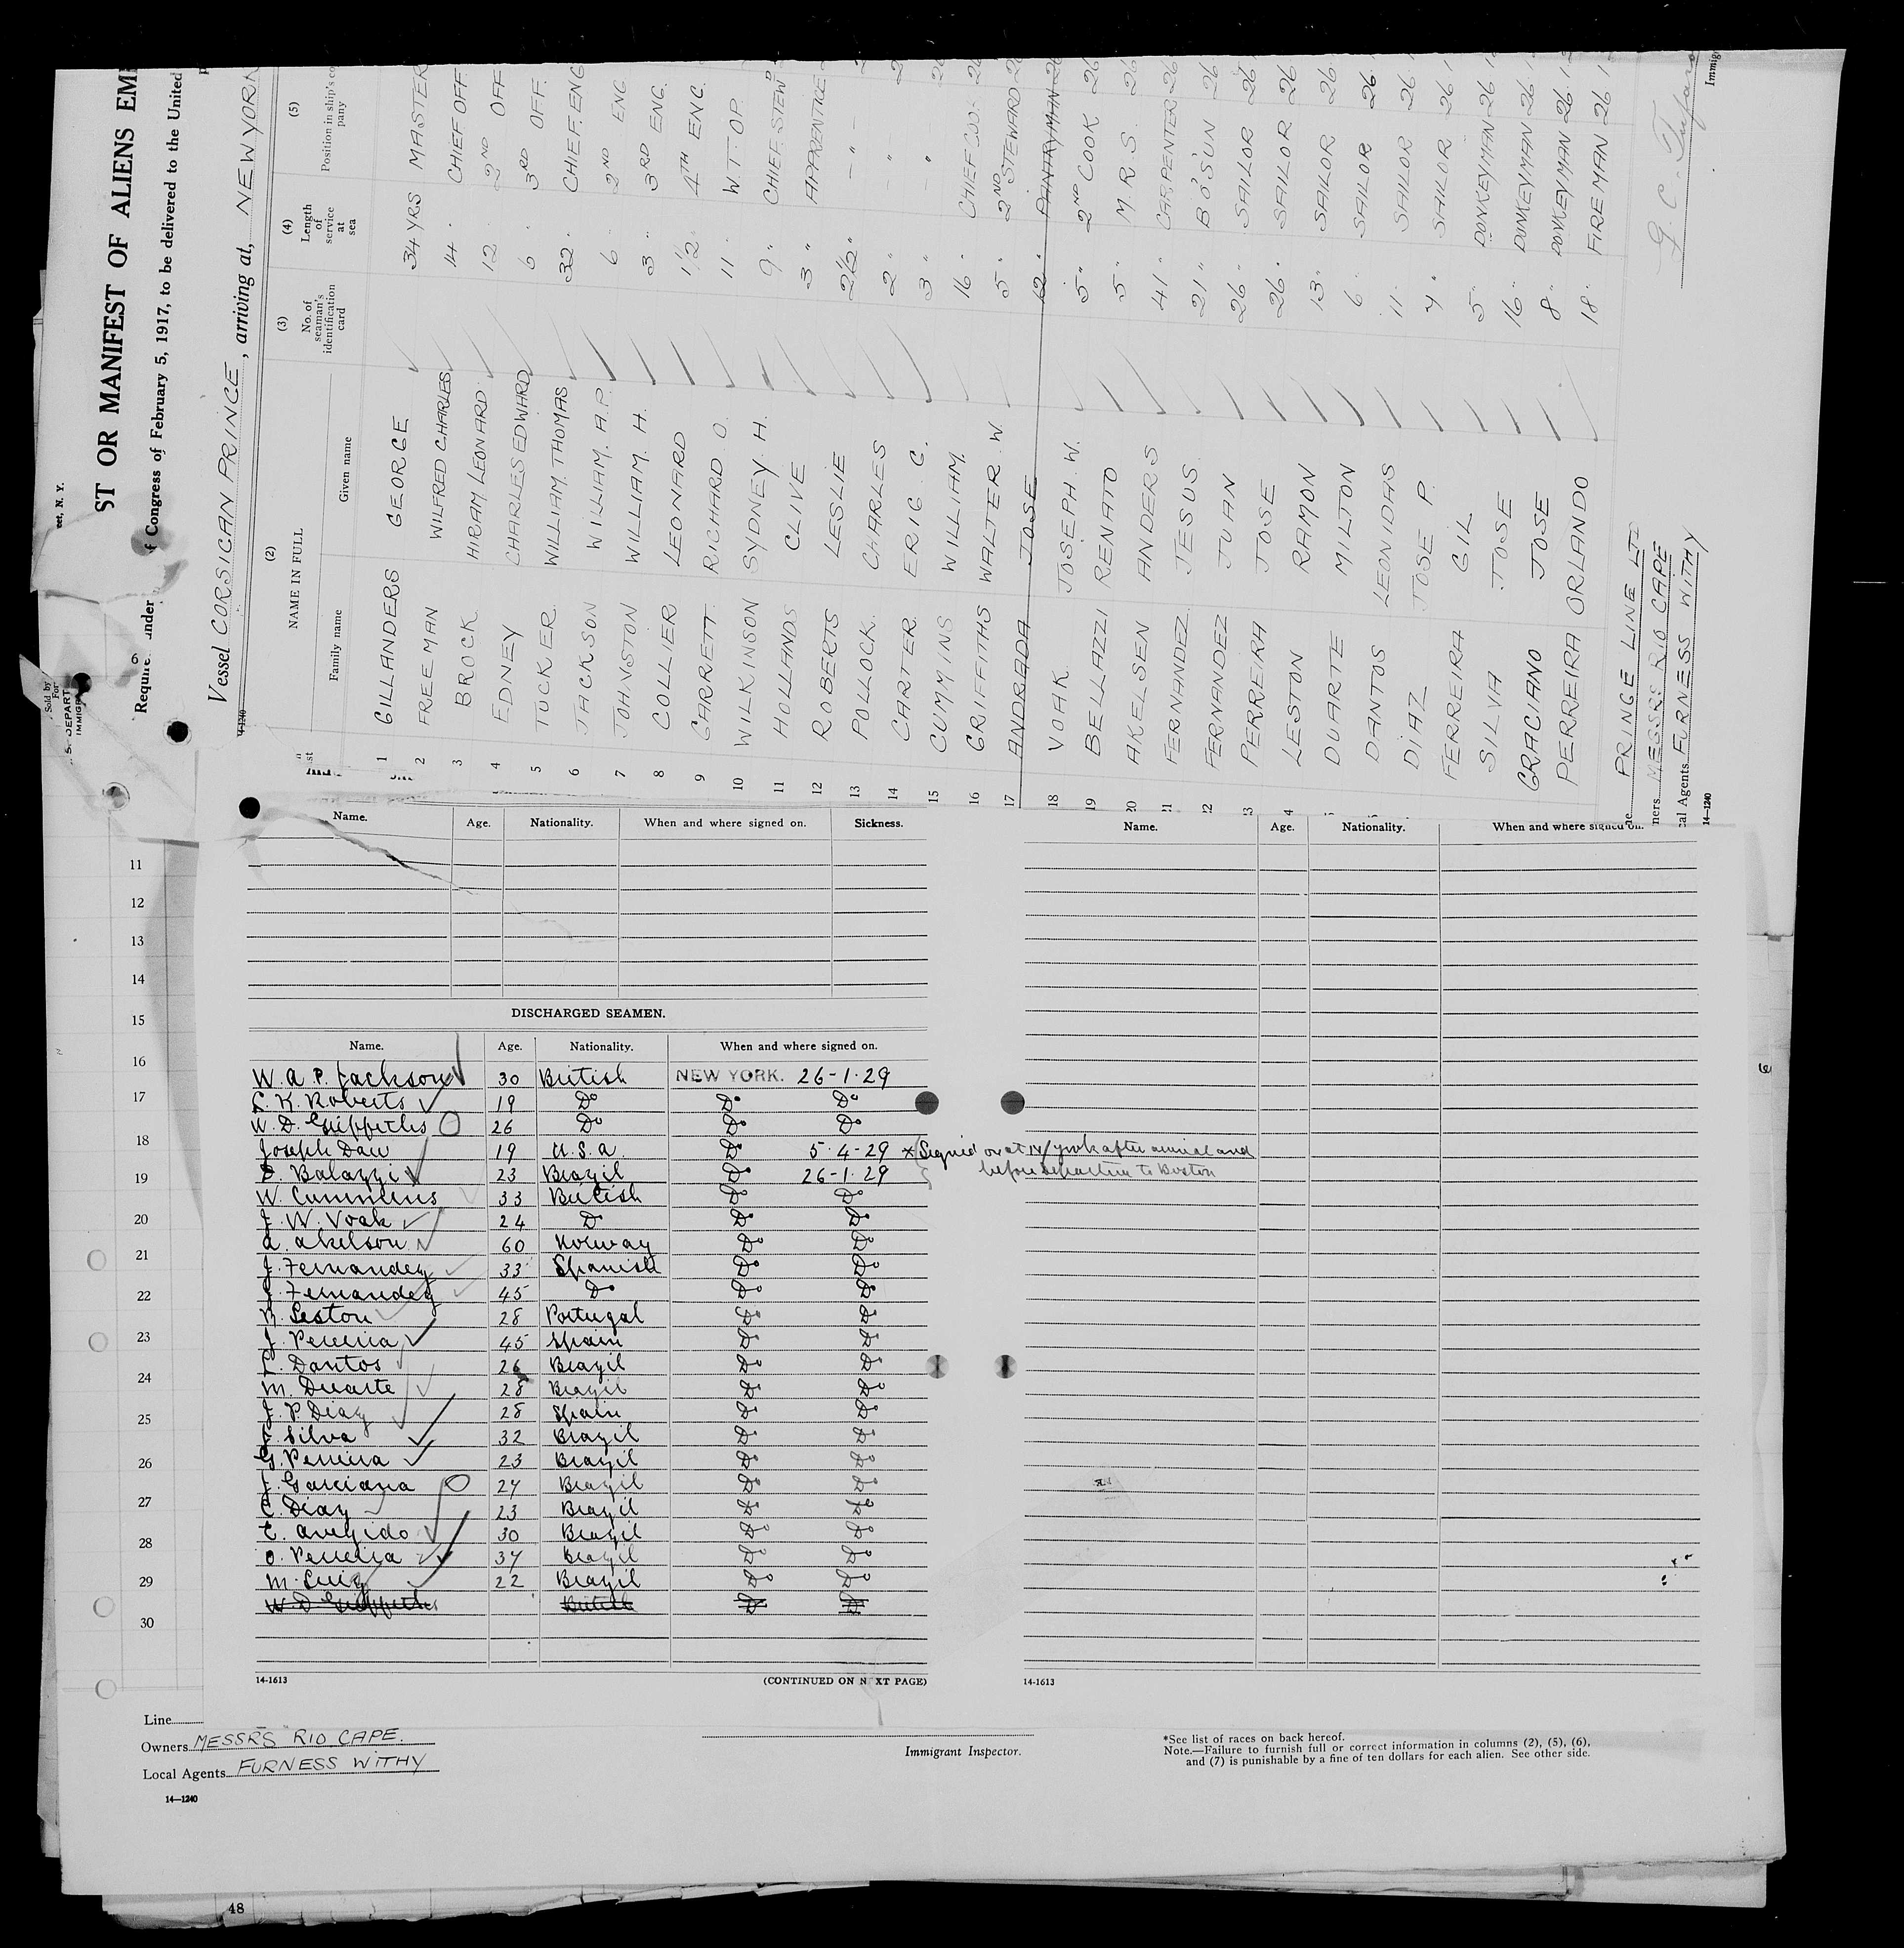 ST OR MANIFEST OF ALIENS EM
Congress of February 5, 1917, to be delivered to the United
Vessel CORSICAN PRINCE, arriving at, NEW YORK
(2) (3) (4) (5)
NAME IN FULL No. of seaman's identification card Length of service at sea Position in ship's company
Family name Given name
1 GILLANDERS GEORGE 34 YRS MASTER
2 FREEMAN WILFRED CHARLES 14 " CHIEF OFF.
3 BROCK HIRAM LEONARD 12 " 2ND OFF
4 EDNEY CHARLES EDWARD 6 " 3RD OFF.
5 TUCKER WILLIAM THOMAS 32 " CHIEF. ENG
6 JACKSON WILLIAM. A.P. 6 " 2ND ENG
7 JOHNSTON WILLIAM. H. 3 " 3RD ENG.
8 COLLIER LEONARD 1½ " 4TH ENG.
9 GARRETT RICHARD O. 11 " W.T. OP.
10 WILKINSON SYDNEY. H. 9 " CHIEF. STEW
11 HOLLANDS CLIVE 3 " APPRENTICE
12 ROBERTS LESLIE 2½ " - " -
13 POLLOCK. CHARLES 2 " - " -
14 CARTER ERIC. C. 3 " - " -
15 CUMMINS WILLIAM. 16 " CHIEF COOK 26
16 GRIFFITHS WALTER. W 5 " 2ND STEWARD 26
17 ANDRADA JOSE 12 " PANTRYMAN 26
18 VOAK JOSEPH. W. 5 " 2ND COOK 26
19 BELLAZZI RENATO 5 " M.R.S. 26
20 AKELSEN ANDERS 41 " CARPENTER 26
21 FERNANDEZ JESUS. 21 " BO'SUN 26
22 FERNANDEZ JUAN 26 " SAILOR 26
23 PERREIRA JOSE 26 " SAILOR 26
LESTON RAMON 13 " SAILOR 26
DUARTE MILTON 6 " SAILOR 26
DANTOS LEONIDAS 11 " SAILOR 26
DIAZ JOSE P. 4 " SAILOR 26
FERREIRA GIL 5 " DONKEYMAN 26
SILVA JOSE 16 " DONKEYMAN 26
GRACIANO JOSE 8 " DONKEYMAN 26
PERREIRA ORLANDO 18 " FIREMAN 26
PRINCE LINE LTD
MESSRS RIO CAPE
Agents FURNESS WITHY
14-1240
Name. Age. Nationality. When and where signed on. Sickness.
Name. Age. Nationality. When and where signed on.
DISCHARGED SEAMEN.
Name. Age. Nationality. When and where signed on.
W. A. P. Jackson 30 British NEW YORK. 26-1-29
L. K. Roberts 19 Do Do Do
W. D. Griffiths 26 Do Do Do
Joseph Daw 19 U.S.A. Do 5-4-29 * Signed on at N/york after arrival and
before departure to Boston
Balazzi 23 Brazil Do 26-1-29
W. Cummins 33 British Do Do
J. W. Voak 24 Do Do Do
A. Akelson 60 Norway Do Do
J. Fernandez 33 Spanish Do Do
J. Fernandez 45 Do Do Do
R. Leston 28 Portugal Do Do
J. Perreria 45 Spain Do Do
L. Dantos 26 Brazil Do Do
M. Duarte 28 Brazil Do Do
J. P. Diaz 28 Spain Do Do
J. Silva 32 Brazil Do Do
G. Perreira 23 Brazil Do Do
J. Garciana 27 Brazil Do Do
C. Diaz 23 Brazil Do Do
E. 30 Brazil Do Do
O. Perreria 34 Brazil Do Do
M. Luiz 22 Brazil Do Do
W D Griffiths British Do Do
14-1613 (CONTINUED ON NEXT PAGE)
14-1613
11
12
13
14
15
16
17
18
19
20
21
22
23
24
25
26
27
28
29
30
Line
Owners MESSRS RIO CAPE.
Local Agents FURNESS WITHY
14—1240
Immigrant Inspector.
*See list of races on back hereof.
Note.—Failure to furnish full or correct information in columns (2), (5), (6),
and (7) is punishable by a fine of ten dollars for each alien. See other side.
48